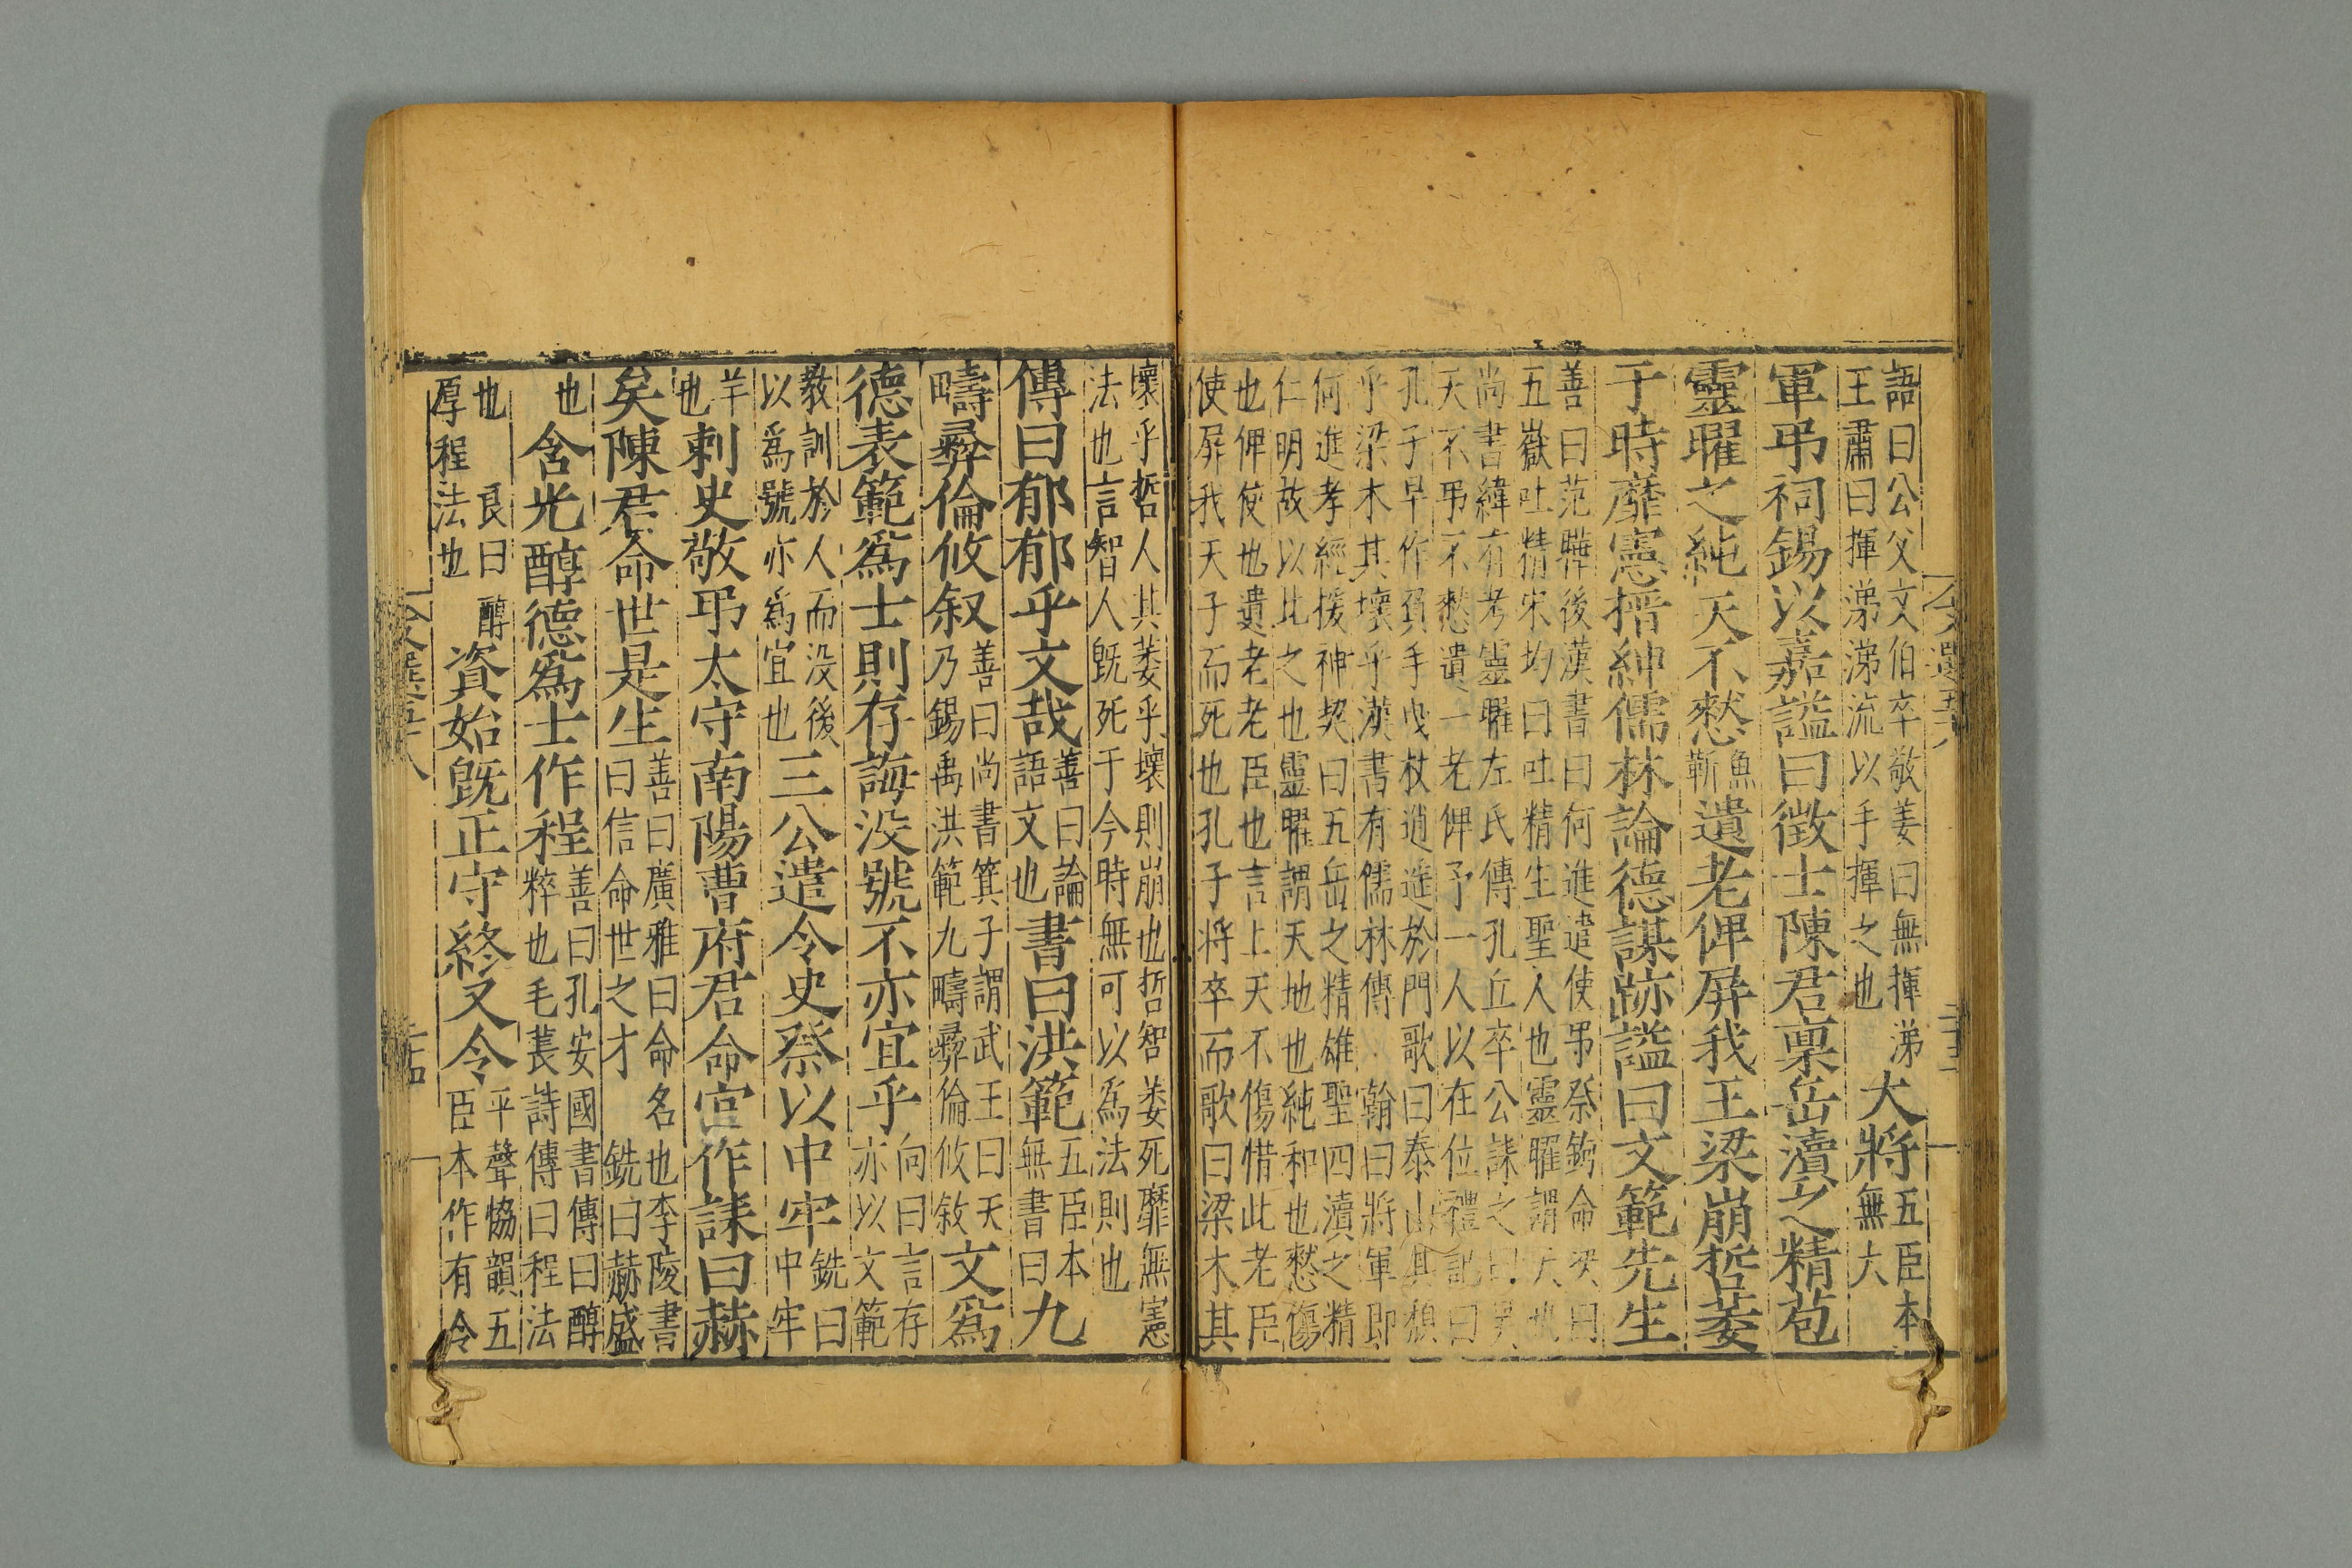 語曰公父文伯卒敬姜曰無揮涕
王肅曰揮涕涕流以手揮之也
大將
五臣本
無大
軍弔祠錫以嘉謚曰徵士陳君稟岳瀆之精苞
靈曜之純天不憗
魚
靳
遺老俾屏我王梁崩哲萎
于時靡憲搢紳儒林論德謀跡謚曰文範先生
善曰范曄後漢書曰何進遣使弔祭
五嶽吐精宋均曰吐精生聖人也靈曜謂天也
尚書緯有考靈曜左氏傳孔丘卒公誄之曰旻
天不弔不憗遺一老俾予一人以在位禮記曰
孔子早作負手曳杖逍遥於門歌曰泰山其頹
乎梁木其壞乎漢書有儒林傳 翰曰將軍即
何進孝經援神契曰五岳之精雄聖四瀆之精
仁明故以比之也靈曜謂天地也純和也憗傷
也俾使也遺老老臣也言上天不傷惜此老臣
使屏我天子而死也孔子將卒而歌曰梁木其
壞乎哲人其萎乎壞則崩也哲智萎死靡無憲
法也言智人既死于今時無可以爲法則也
傳曰郁郁乎文哉
善曰論
語文也
書曰洪範
五臣本
無書曰
九
疇彝倫攸叙
善曰尚書箕子謂武王曰天
乃錫禹洪範九疇彝倫攸敘
文爲
德表範爲士則存誨没號不亦宜乎
向曰言存
亦以文範
教訓於人而没後
以爲號亦爲宜也
三公遣令史祭以中牢
銑曰
中牢
羊
也
刺史敬弔太守南陽曹府君命官作誄曰赫
矣陳君命世是生
善曰廣雅曰命名也李陵書
曰信命世之才 銑曰赫盛
也
含光醇德爲士作程
善曰孔安國書傳曰醇
粹也毛萇詩傳曰程法
也 良曰 醇
厚程法也
資始既正守終又令
平聲恊韻五
臣本作有令